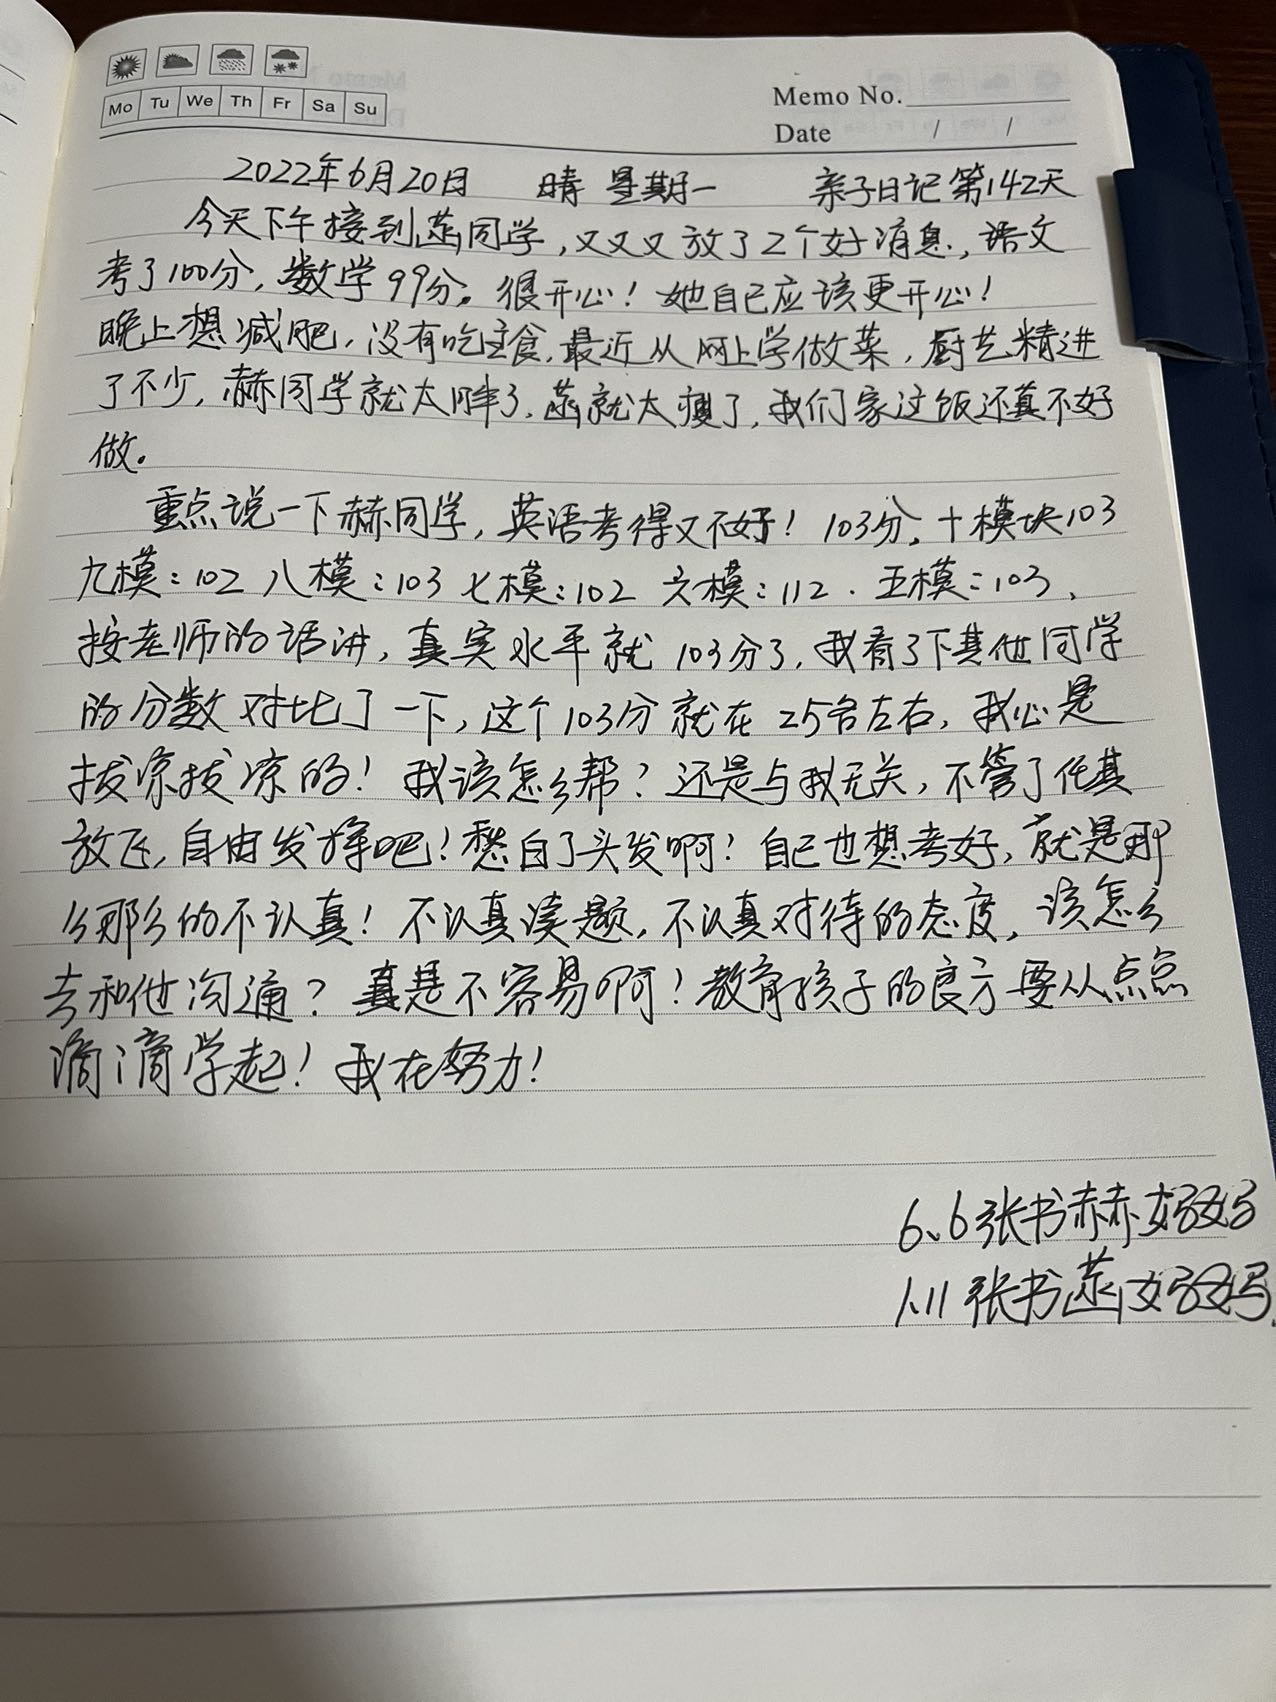 Mo Tu We Th Fr Sa Su
Memo No.
Date / /
2022年6月20日 晴 星期一 亲子日记第142天
今天下午接到菡同学，又又又放了2个好消息，语文
考了100分，数学99分。很开心！她自己应该更开心！
晚上想减肥，没有吃主食，最近从网上学做菜，厨艺精进
了不少，赫同学就太胖了，菡就太瘦了，我们家这饭还真不好
做。
重点说一下赫同学，英语考得又不好！103分，十模块103
九模：102 八模：103 七模：102 六模：112. 五模：103，
按老师的话讲，真实水平就103分了，我看了下其他同学
的分数对比了一下，这个103分就在25名左右，我心是
拔凉拔凉的！我该怎么帮？还是与我无关，不管了任其
放飞，自由发挥吧！愁白了头发啊！自己也想考好，就是那
么那么的不认真！不认真读题，不认真对待的态度，该怎么
去和他沟通？真是不容易啊！教育孩子的良方要从点点
滴滴学起！我在努力！
6、6张书赫妈妈
1.11张书菡妈妈.